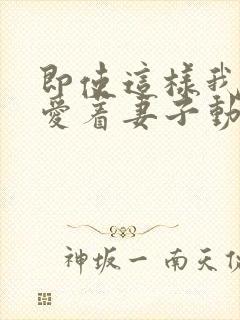 即使這樣我
愛着妻子動
神坂一 南天